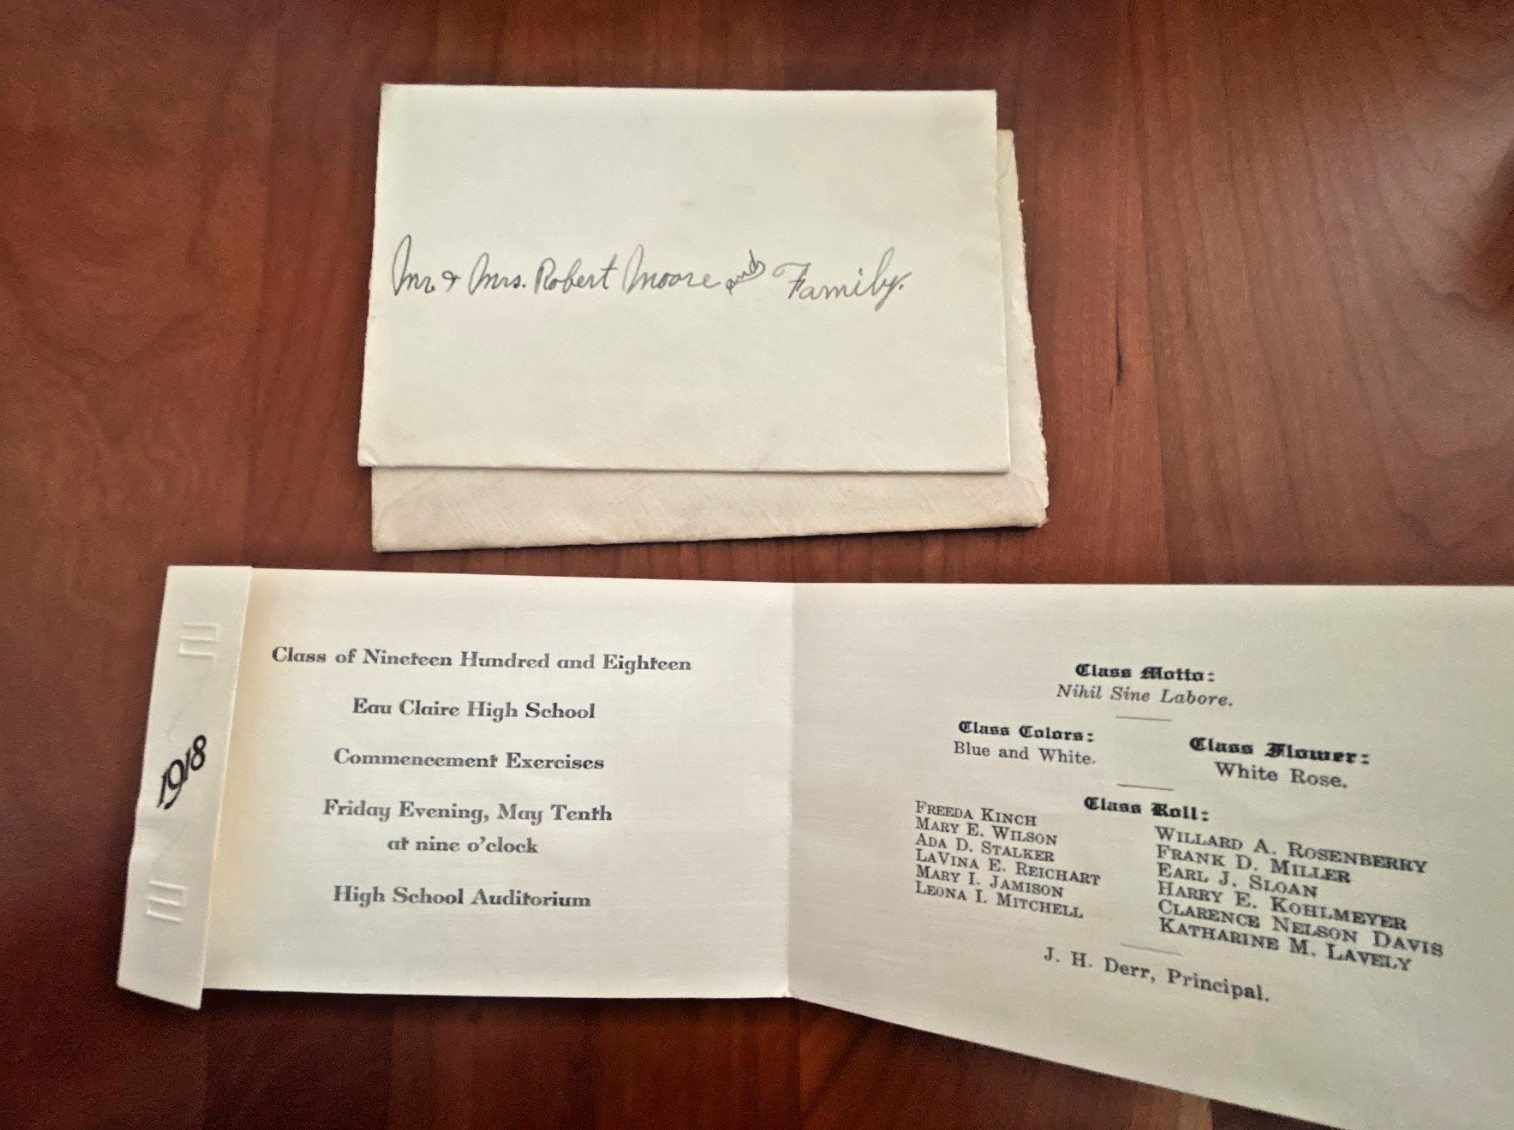 Mr. & Mrs. Robert Moore and Family.
1918
Class of Nineteen Hundred and Eighteen
Eau Claire High School
Commencement Exercises
Friday Evening, May Tenth
at nine o'clock
High School Auditorium
Class Motto:
Nihil Sine Labore.
Class Colors:
Blue and White.
Class Flower:
White Rose.
Class Roll:
Freeda Kinch
Mary E. Wilson
Ada D. Stalker
LaVina E. Reichart
Mary I. Jamison
Leona I. Mitchell
Willard A. Rosenberry
Frank D. Miller
Earl J. Sloan
Harry E. Kohlmeyer
Clarence Nelson Davis
Katharine M. Lavely
J. H. Derr, Principal.